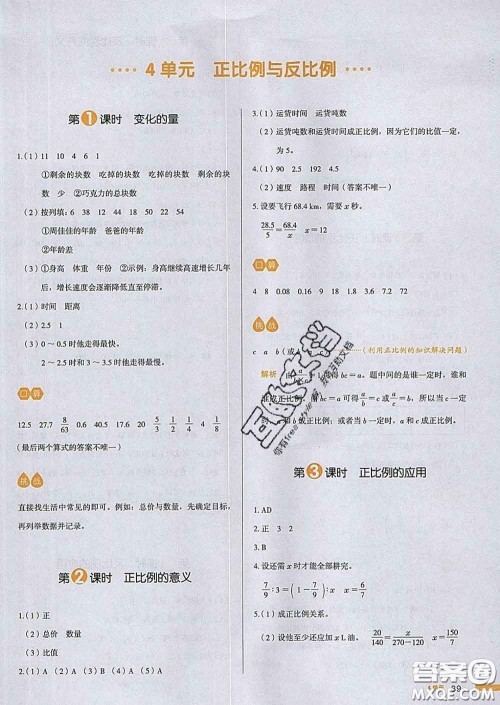 4单元 正比例与反比例
第1课时 变化的量
1.(1) 11 10 4 6 1
①剩余的块数 吃掉的块数 吃掉的块数 剩余的块
数 少 ②巧克力的总块数
(2) 按列填:6 38 12 44 18 50 22 54
①周佳佳的年龄 爸爸的年龄
②年龄差
(3) ①身高 体重 年份 ②示例:身高继续高速增长几年
后,增长速度会逐渐降低直至停滞。
2.(1) 时间 距离
(2) 2.5 1
(3) 0～0.5时他走得最快。
2～2.5时和3～3.5时他走得最慢。
口算
12.5 27.7 8/63 0.6 40.5 20 5/4 1/2 1/4 4 8
(最后两个算式的答案不唯一)
挑战
直接找生活中常见的即可。例如:总价与数量,先确定目标,
再列举数据并记录。
第2课时 正比例的意义
1.(1) 正
(2) 总价 数量
(3) 比值
2.(1) A (2) A (3) B (4) A (5) A
3.(1) 运货时间 运货吨数
(2) 运货吨数和运货时间成正比例,因为它们的比值一定,
为5。
4.(1) 90 2.5 192 4.5
(2) 速度 路程 时间(答案不唯一)
5.设要飞行68.4 km,需要x秒。
28.5/5=68.4/x x=12
口算
4 8 0.08 0.16 9 18 1.8 3.6 7.2 72
挑战
c a b(或
(利用正比例的知识解决问题)
解析
得bc=a。题中间的是谁一定时,谁和
谁成正比例,
bc=a可得a/b=c或a/c=b,所以当c一定
时,a和b成正比例;或者当b一定时,a和c成正比例。
第3课时 正比例的应用
1.AD
2.正 3 2
3.B
4.设还需x时才能全部耕完。
7/9:3=(1-7/9):x x=6/7
5.(1) 成正比例关系。
(2) 设他至少还应加x L油。 20/140=x/(270-140) x=130/7
39
答案圈
MXQE.COM